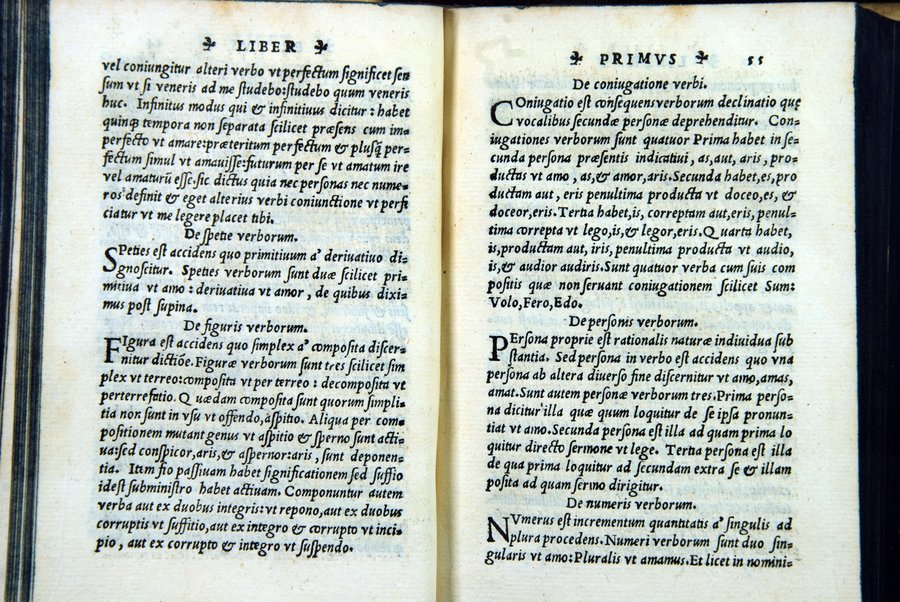 LIBER
vel coniungitur alteri verbo vt perfectum significet sen
sum vt si veneris ad me studebo:studebo quum veneris
huc. Infinitus modus qui & infinitiuus dicitur : habet
quinqꝫ tempora non separata scilicet præsens cum im=
perfecto vt amare:præteritum perfectum & plusq̃ per=
fectum simul vt amauisse:futurum per se vt amatum ire
vel amaturũ esse.sic dictus quia nec personas nec nume=
ros definit & eget alterius verbi coniunctione vt perfi
ciatur vt me legere placet tibi.
De spetie verborum.
Speties est accidens quo primitiuum a' deriuatiuo di=
gnoscitur. Speties verborum sunt duæ scilicet pri=
mitiua vt amo : deriuatiua vt amor, de quibus dixi=
mus post supina.
De figuris verborum.
Figura est accidens quo simplex a' composita discer=
nitur dictiõe. Figuræ verborum sunt tres scilicet sim
plex vt terreo:composita vt per terreo : decomposita vt
perterrefatio. Quædam composita sunt quorum simpli=
tia non sunt in vsu vt offendo, aspitio. Aliqua per com=
positionem mutant genus vt aspitio & sperno sunt acti=
ua:sed conspicor,aris,& aspernor:aris, sunt deponen=
tia. Item fio passiuam habet significationem sed suffio
idest subministro habet actiuam. Componuntur autem
verba aut ex duobus integris:vt repono,aut ex duobus
corruptis vt suffitio,aut ex integro & corrupto vt inci=
pio, aut ex corrupto & integro vt suspendo.
PRIMVS 55
De coniugatione verbi.
Coniugatio est consequens verborum declinatio quę
vocalibus secundæ personæ deprehenditur. Con=
iugationes verborum sunt quatuor Prima habet in se=
cunda persona præsentis indicatiui, as,aut, aris, pro=
ductas vt amo, as,& amor,aris.Secunda habet,es,pro
ductam aut, eris penultima producta vt doceo,es, &
doceor,eris. Tertia habet,is, correptam aut,eris, penul=
tima correpta vt lego,is,& legor,eris. Quarta habet,
is,productam aut, iris, penultima producta vt audio,
is,& audior audiris.Sunt quatuor verba cum suis com
positis quæ non seruant coniugationem scilicet Sum:
Volo,Fero,Edo.
De personis verborum.
Persona proprie est rationalis naturæ indiuidua sub
stantia. Sed persona in verbo est accidens quo vna
persona ab altera diuerso fine discernitur vt amo,amas,
amat.Sunt autem personæ verborum tres.Prima perso=
na dicitur illa quæ quum loquitur de se ipsa pronun=
tiat vt amo.Secunda persona est illa ad quam prima lo
quitur directo sermone vt lege. Tertia persona est illa
de qua prima loquitur ad secundam extra se & illam
posita ad quam sermo dirigitur.
De numeris verborum.
NVmerus est incrementum quantitatis a' singulis ad
plura procedens.Numeri verborum sunt duo sin=
gularis vt amo:Pluralis vt amamus.Et licet in nomini=